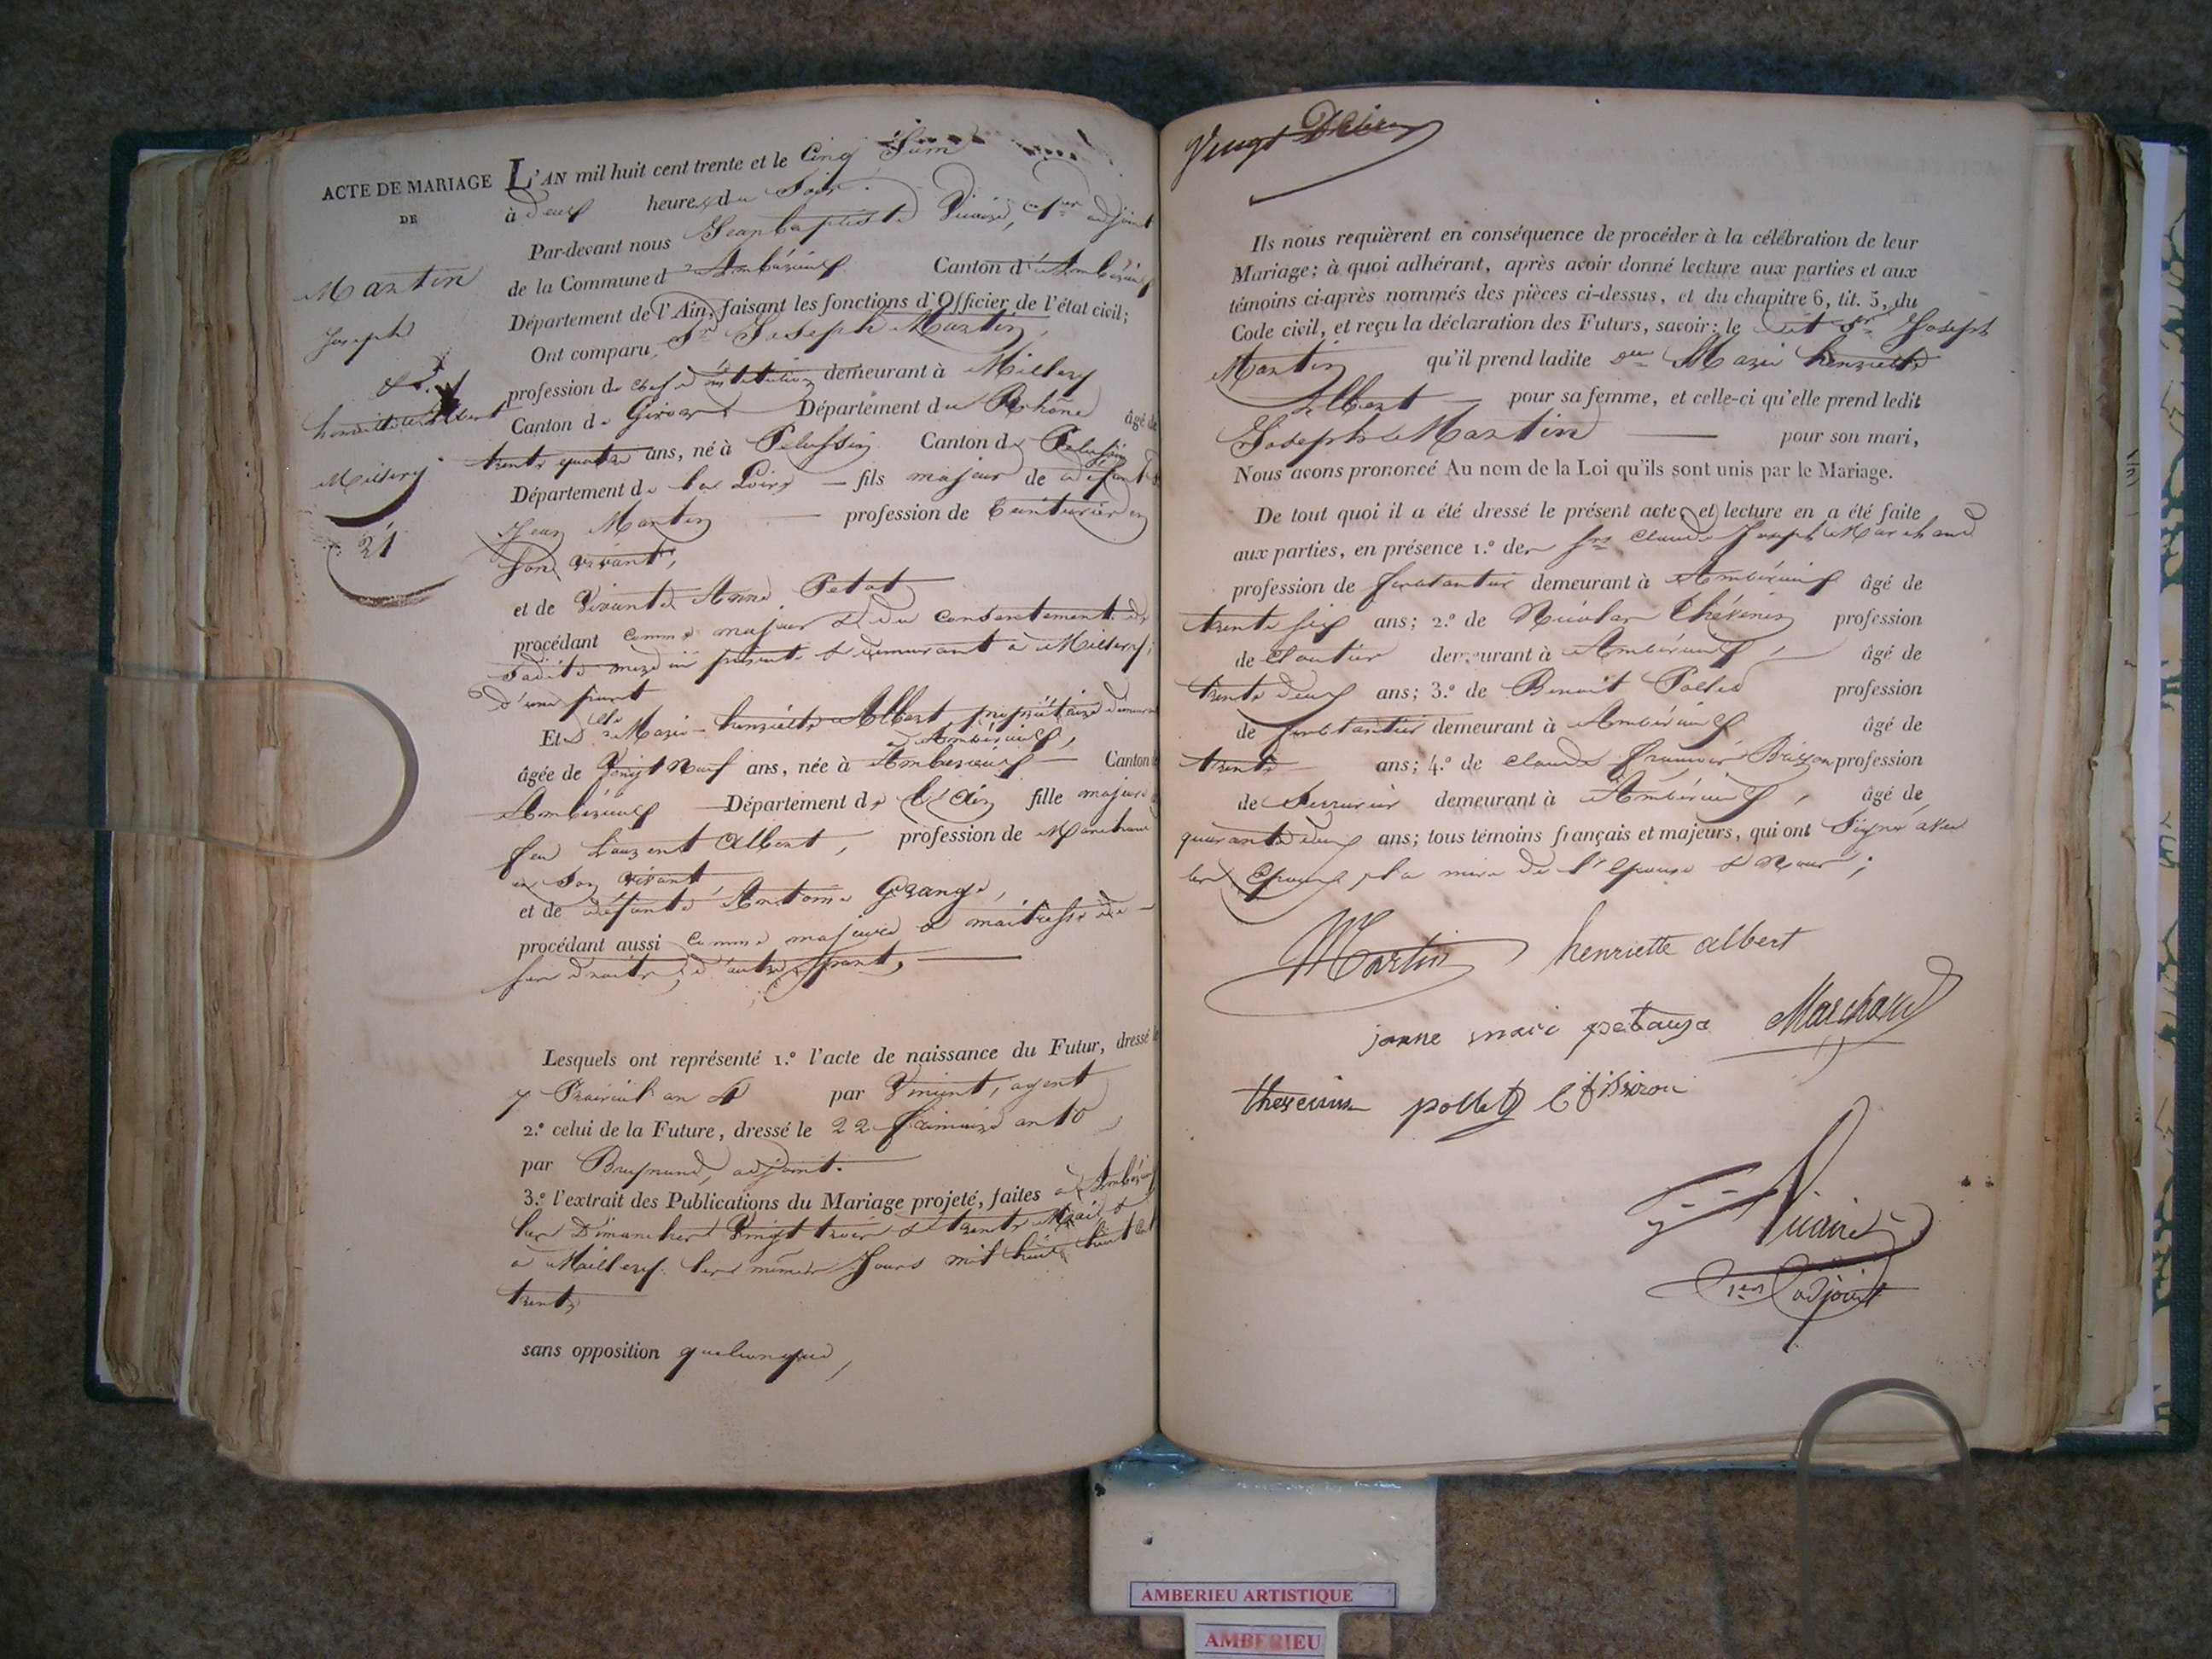 ACTE DE MARIAGE
DE
Martin
Joseph
&
henriette Albert
Millery
21
L'AN mil huit cent trente et le Cinq Juin
à deux heures du Soir
Par-devant nous Jean baptiste Vicaire, 1er adjoint
de la Commune d'Ambérieux Canton d'Ambérieux
Département de l'Ain, faisant les fonctions d'Officier de l'état civil;
Ont comparu Sr Joseph Martin,
profession de chef d'institution demeurant à Millery
Canton de Givors Département du Rhône âgé de
trente quatre ans, né à Pelussin Canton de Pelussin
Département de la Loire — fils majeur de défunt
Jean Martin — profession de teinturier en
son vivant,
et de Vivante Anne Petot
procédant comme majeur & du consentement de
sadite mère ici présente & demeurant à Millery;
d'une part
Et Dlle Marie henriette Albert propriétaire demeurant
à Ambérieux,
âgée de Vingt Neuf ans, née à Ambérieux — Canton
Ambérieux — Département de l'Ain fille majeure
feu Laurent Albert, profession de Marchand
en son vivant
et de défunte Antoinne Grange,
procédant aussi comme majeure & maitresse de
ses droits, d'autre part,
Lesquels ont représenté 1.º l'acte de naissance du Futur, dressé le
7 Prairial an 4 par Vincent, agent
2.º celui de la Future, dressé le 22 frimaire an 10
par adjoint.
3.º l'extrait des Publications du Mariage projeté, faites à Ambérieux
les Dimanches Vingt trois & trente Mai &
à Millery les mêmes Jours mil huit cent
trente
sans opposition quelconque,
Vingt Deux
Ils nous requièrent en conséquence de procéder à la célébration de leur
Mariage; à quoi adhérant, après avoir donné lecture aux parties et aux
témoins ci-après nommés des pièces ci-dessus, et du chapitre 6, tit. 5, du
Code civil, et reçu la déclaration des Futurs, savoir: le dit Sr Joseph
Martin qu'il prend ladite Dlle Marie henriette
Albert — pour sa femme, et celle-ci qu'elle prend ledit
Joseph Martin — pour son mari,
Nous avons prononcé Au nom de la Loi qu'ils sont unis par le Mariage.
De tout quoi il a été dressé le présent acte, et lecture en a été faite
aux parties, en présence 1.º de Srs Claude Joseph Marchand
profession de ferblantier demeurant à Ambérieux âgé de
trente six ans; 2.º de Nicolas Thévenin profession
de cloutier demeurant à Ambérieux, âgé de
trente deux ans; 3.º de Benoit Pollet profession
de ferblantier demeurant à Ambérieux âgé de
trente ans; 4.º de Claude françois Brizon profession
de Serrurier demeurant à Ambérieux, âgé de
quarante deux ans; tous témoins français et majeurs, qui ont Signé avec
les Epoux, la mère de l'Epoux & Nous;
Martin henriette albert
Marchand
pollet
Vicaire
1er adjoint
AMBERIEU ARTISTIQUE
AMBERIEU